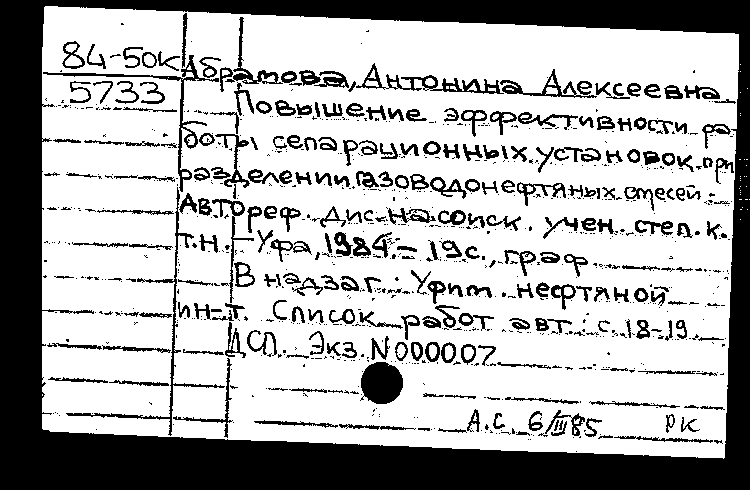 84-50К Абрамова, Антонина Алексеевна
5733 Повышение эффективности ра
боты сепарационных установок при
разделении газоводонефтяных смесей:
Автореф. дис. на соиск. учен. степ. к.
т.н. - Уфа, 1984. - 19 с., граф.
В надзаг.: Уфим. нефтяной
ин-т. Список работ авт.: с. 18-19.
ДСП. Экз. N 000007
А.С. 6/III 85 РК